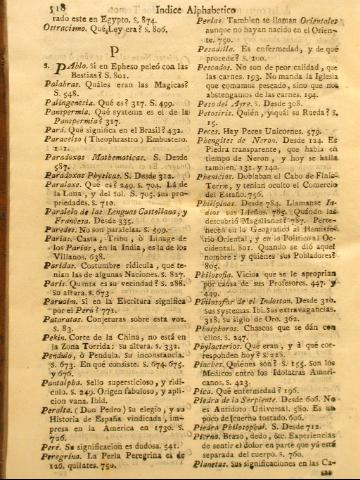 518 Indice Alphabetico
rado este en Egypto. S. 874.
Ostracismo. Qué Ley era? S. 806.
P
S. PAblo. Si en Epheso peleó con las
Bestias? S. 801.
Palabras. Quáles eran las Magicas?
S. 548.
Palingenesia. Qué es? 317. S. 499.
Panspermia. Qué systema es el de la
Panspermia? 317.
Pará. Qué significa en el Brasil? 432.
Paracelso (Theophrastro) Embustero.
Paradoxas Mathematicas. S. Desde
587.
Paradoxas Physicas. S. Desde 312.
Paralaxe. Qué es? 249. S. 704. La de
la Luna, y del Sol. S. 705. sus pro-
piedades. S. 710.
Paralelo de las Lenguas Castellana, y
Francesa. Desde 335.
Paredes. No son paralelas. S. 599.
Parias. Casta, Tribu, ò Linage de
los Parias, en la India, es la de los
Villanos. 638.
Paridas. Costumbre ridicula, que te-
nian las de algunas Naciones. S. 827.
París. Quánta es su vecindad? S. 288.
Su altura. S. 673
Parvaim. Si en la Escritura significa
por el Perú? 771.
Pataratas. Conjeturas sobre esta voz.
S. 83.
Pekin. Corte de la China, no está en
la Zona Torrida: su altura. S. 332.
Pendulo, ò Pendola. Su inconstancia.
S. 673. En qué consiste. S. 674. 675.
y 676.
Pantalpha. Sello supersticioso, y ridi-
culo. S. 249. Origen fabuloso, y apli-
cacion vana. Ibid.
Peralta. (Don Pedro) Su elogio, y su
Historia de España vindicada, im-
presa en la America en 1730. S.
726.
Peré. Su significacion es dudosa. 541.
Peregrina. La Perla Peregrina es de
126. quilates. 750.
Perlas. Tambien se llaman Orientales
aunque no hayan nacido en el Orien-
te. 750.
Pesadilla. Es enfermedad, y de qué
procede? S. 100.
Pescados. No son de peor calidad, que
las carnes. 193. No manda la Iglesia
que comamos pescado, sino que nos
abstengamos de las carnes. 194.
Peso del Ayre. S. Desde 308.
Petosiris. Quién, y quál su Rueda? S.
15.
Peces. Hay Peces Unicornes. 579.
Phengites de Neron. Desde 134. Es
Piedra transparente, que habia en
tiempo de Neron, y hoy se halla
tambien. 131. y 140.
Phenicios. Doblaban el Cabo de Finis-
Terre, y tenian oculto el Comercio
del Estaño. 756.
Philipinas. Desde 784. Llamanse In-
dios sus Isleños. 785. Quándo las
descubrió Magallanes? 787. Perte-
necen en lo Geografico al Hemisfe-
rio Oriental, y en lo Politico al Oc-
cidental. 801. Quándo se dió aquel
nombre; y quiénes sus Pobladores?
805.
Philosofía. Vicios que se le aproprian
por causa de sus Profesores. 447. y
449.
Philosofos de el Indostan. Desde 310.
sus systemas. Ibi. Sus extravagancias.
318. su siglo de Oro. 362.
Phosphoros. Chascos que se dán con
ellos. S. 247.
Phylacterios. Qué eran, y á qué cor-
responden hoy? S. 228.
Piaches. Quiénes son? S. 155. Son los
Medicos entre los Idolatras Ameri-
canos. S. 423.
Pica. Qué enfermedad? 196.
Piedra de la Serpiente. Desde 606. No
es Antidoto Universal. 580. Es un
poco de hueso tostado. 606.
Piedra Philosophal. S. Desde 712.
Pierna. Brazo, dedo, &c. Experiencias
de sentir el dolor en parte que yá está
separada del cuerpo. S. 760.
Planetas. Sus significaciones en las Ca-